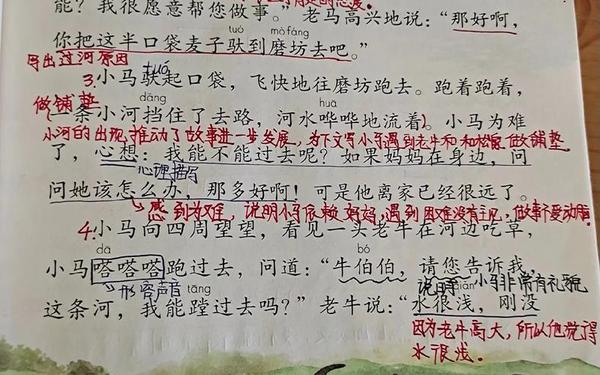 能？我很愿意帮您做事。”老马高兴地说：“那好啊，
tuó mò fáng
你把这半口袋麦子驮到磨坊去吧。”
导出过河原因
3.小马驮起口袋，飞快地往磨坊跑去。跑着跑着，
做铺垫 dāng huā
一条小河挡住了去路，河水哗哗地流着。小马为难
小河的出现，推动了故事进一步发展，为下文写小马遇到老牛和松鼠做铺垫
了，心想：我能不能过去呢？如果妈妈在身边，问
心理描写
问她该怎么办，那多好啊！可是他离家已经很远了。
感到为难，说明小马依赖妈妈，遇到困难没有主见，做事不爱动脑。
4.小马向四周望望，看见一头老牛在河边吃草，
dā bó
小马嗒嗒嗒跑过去，问道：“牛伯伯，请您告诉我，
形容声音 tāng 说明小马非常有礼貌 qiǎn
这条河，我能蹚过去吗？”老牛说：“水很浅，刚没
因为老牛高大，所以他觉得
水很浅。